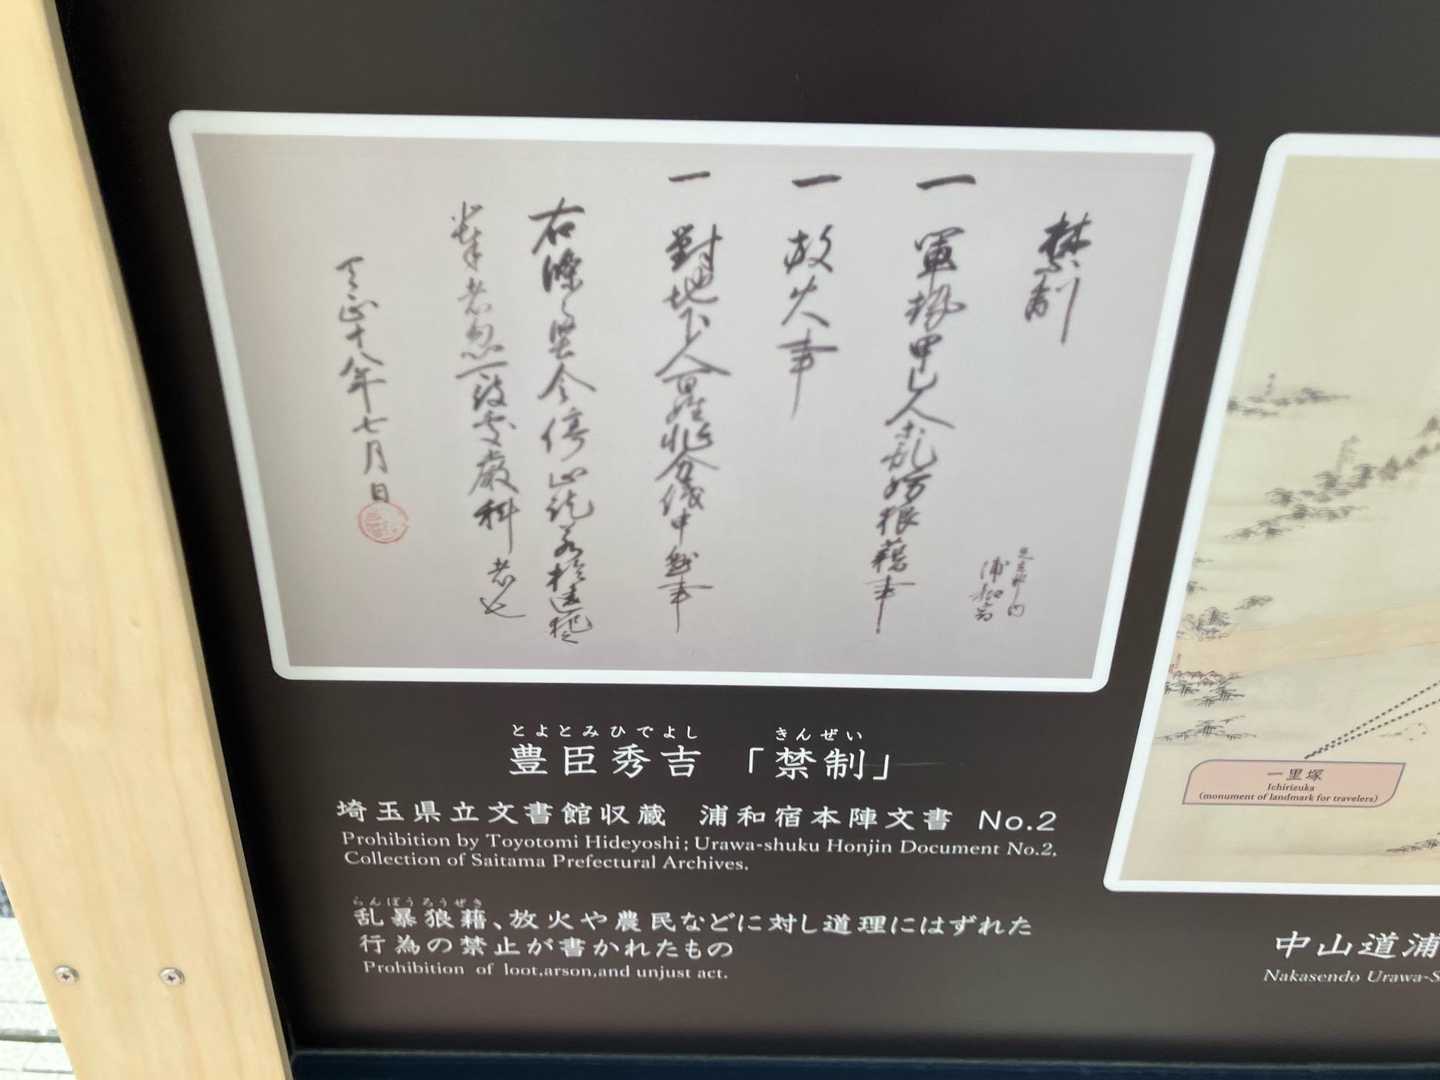 禁制
足立郡内
浦和宿
一 軍勢甲乙人乱妨狼藉事
一 放火事
一 對地下人百姓非分儀申懸事
右條々堅令停止訖若於違犯之
輩者忽可被處嚴科者也
天正十八年七月日
とよとみひでよし きんぜい
豊臣秀吉 「禁制」
埼玉県立文書館収蔵 浦和宿本陣文書 No.2
Prohibition by Toyotomi Hideyoshi; Urawa-shuku Honjin Document No.2,
Collection of Saitama Prefectural Archives.
らんぼうろうぜき
乱暴狼藉、放火や農民などに対し道理にはずれた
行為の禁止が書かれたもの
Prohibition of loot,arson,and unjust act.
一里塚
Ichirizuka
(monument of landmark for travelers)
中山道浦
Nakasendo Urawa-S